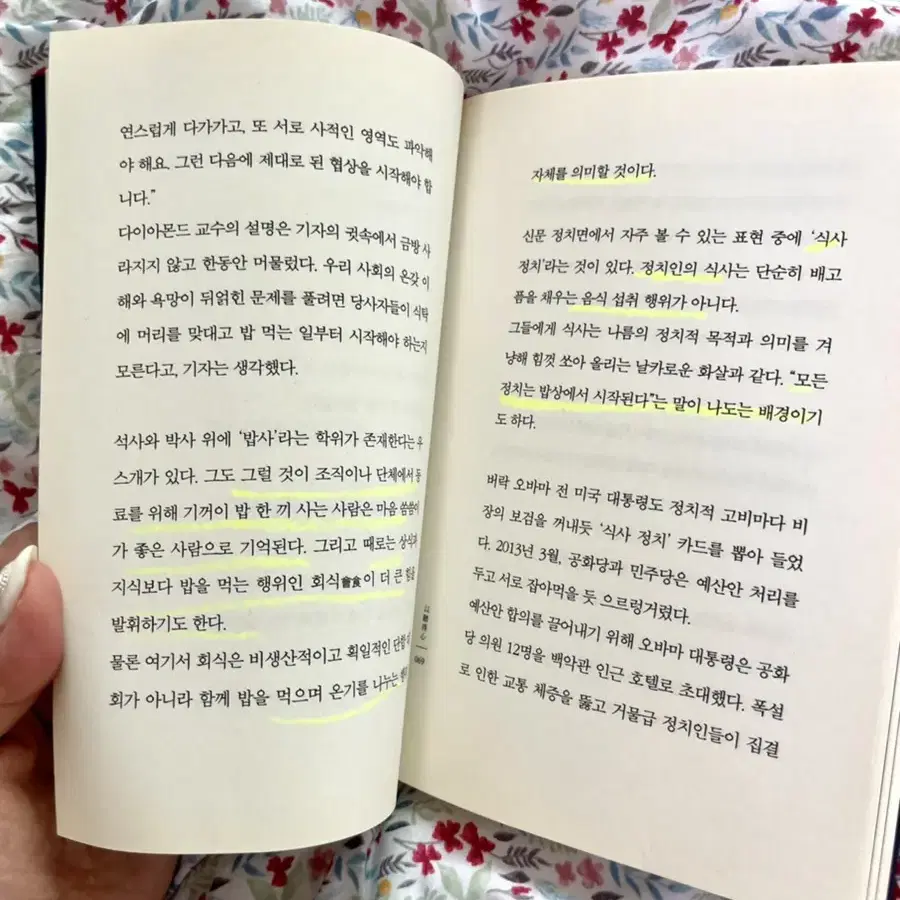 연스럽게 다가가고, 또 서로 사적인 영역도 파악해
야 해요. 그런 다음에 제대로 된 협상을 시작해야 합
니다.”
다이아몬드 교수의 설명은 기자의 귓속에서 금방 사
라지지 않고 한동안 머물렀다. 우리 사회의 온갖 이
해와 욕망이 뒤얽힌 문제를 풀려면 당사자들이 식탁
에 머리를 맞대고 밥 먹는 일부터 시작해야 하는지
모른다고, 기자는 생각했다.
석사와 박사 위에 ‘밥사’라는 학위가 존재한다는 우
스개가 있다. 그도 그럴 것이 조직이나 단체에서 동
료를 위해 기꺼이 밥 한 끼 사는 사람은 마음 씀씀이
가 좋은 사람으로 기억된다. 그리고 때로는 상식과
지식보다 밥을 먹는 행위인 회식會食이 더 큰 힘을
발휘하기도 한다.
물론 여기서 회식은 비생산적이고 획일적인 단합
회가 아니라 함께 밥을 먹으며 온기를 나누는
以聽得心
069
자체를 의미할 것이다.
신문 정치면에서 자주 볼 수 있는 표현 중에 ‘식사
정치’라는 것이 있다. 정치인의 식사는 단순히 배고
픔을 채우는 음식 섭취 행위가 아니다.
그들에게 식사는 나름의 정치적 목적과 의미를 겨
냥해 힘껏 쏘아 올리는 날카로운 화살과 같다. “모든
정치는 밥상에서 시작된다”는 말이 나도는 배경이기
도 하다.
버락 오바마 전 미국 대통령도 정치적 고비마다 비
장의 보검을 꺼내듯 ‘식사 정치’ 카드를 뽑아 들었
다. 2013년 3월, 공화당과 민주당은 예산안 처리를
두고 서로 잡아먹을 듯 으르렁거렸다.
예산안 합의를 끌어내기 위해 오바마 대통령은 공화
당 의원 12명을 백악관 인근 호텔로 초대했다. 폭설
로 인한 교통 체증을 뚫고 거물급 정치인들이 집결